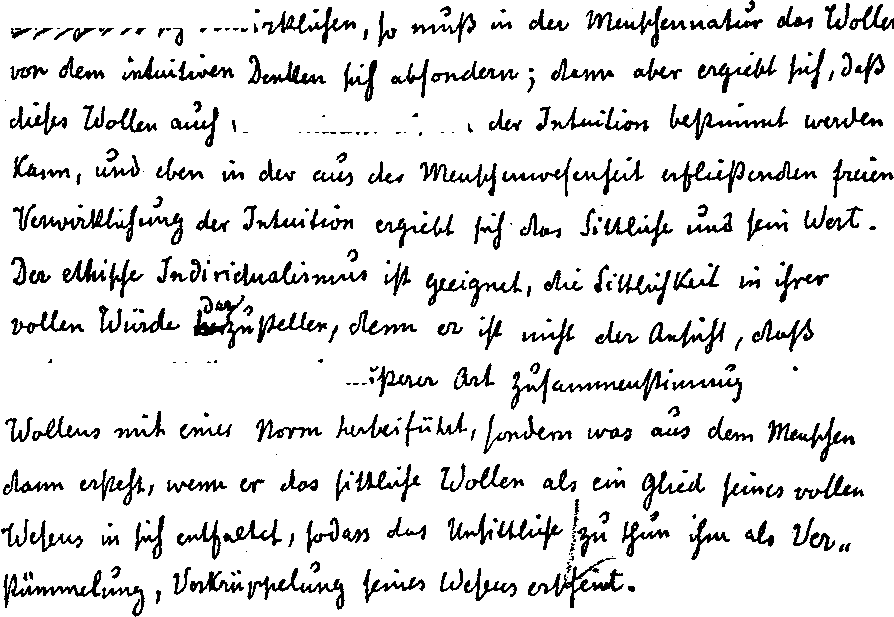 irklichen, so muß in der Menschennatur das Wollen
von dem intuitiven Denken sich absondern; dann aber ergiebt sich, daß
dieses Wollen auch der Intuition bestimmt werden
kann, und eben in der aus der Menschenwesenheit erfließenden freien
Verwirklichung der Intuition ergiebt sich das Sittliche und sein Wert.
Der ethische Individualismus ist geeignet, die Sittlichkeit in ihrer
vollen Würde darzustellen, denn er ist nicht der Ansicht, daß
ßerer Art Zusammenstimmung
Wollens mit einer Norm herbeiführt, sondern was aus dem Menschen
dann ersteht, wenn er das sittliche Wollen als ein Glied seines vollen
Wesens in sich entfaltet, sodass das Unsittliche zu thun ihm als Ver-
stümmelung, Verkrüppelung seines Wesens erscheint.